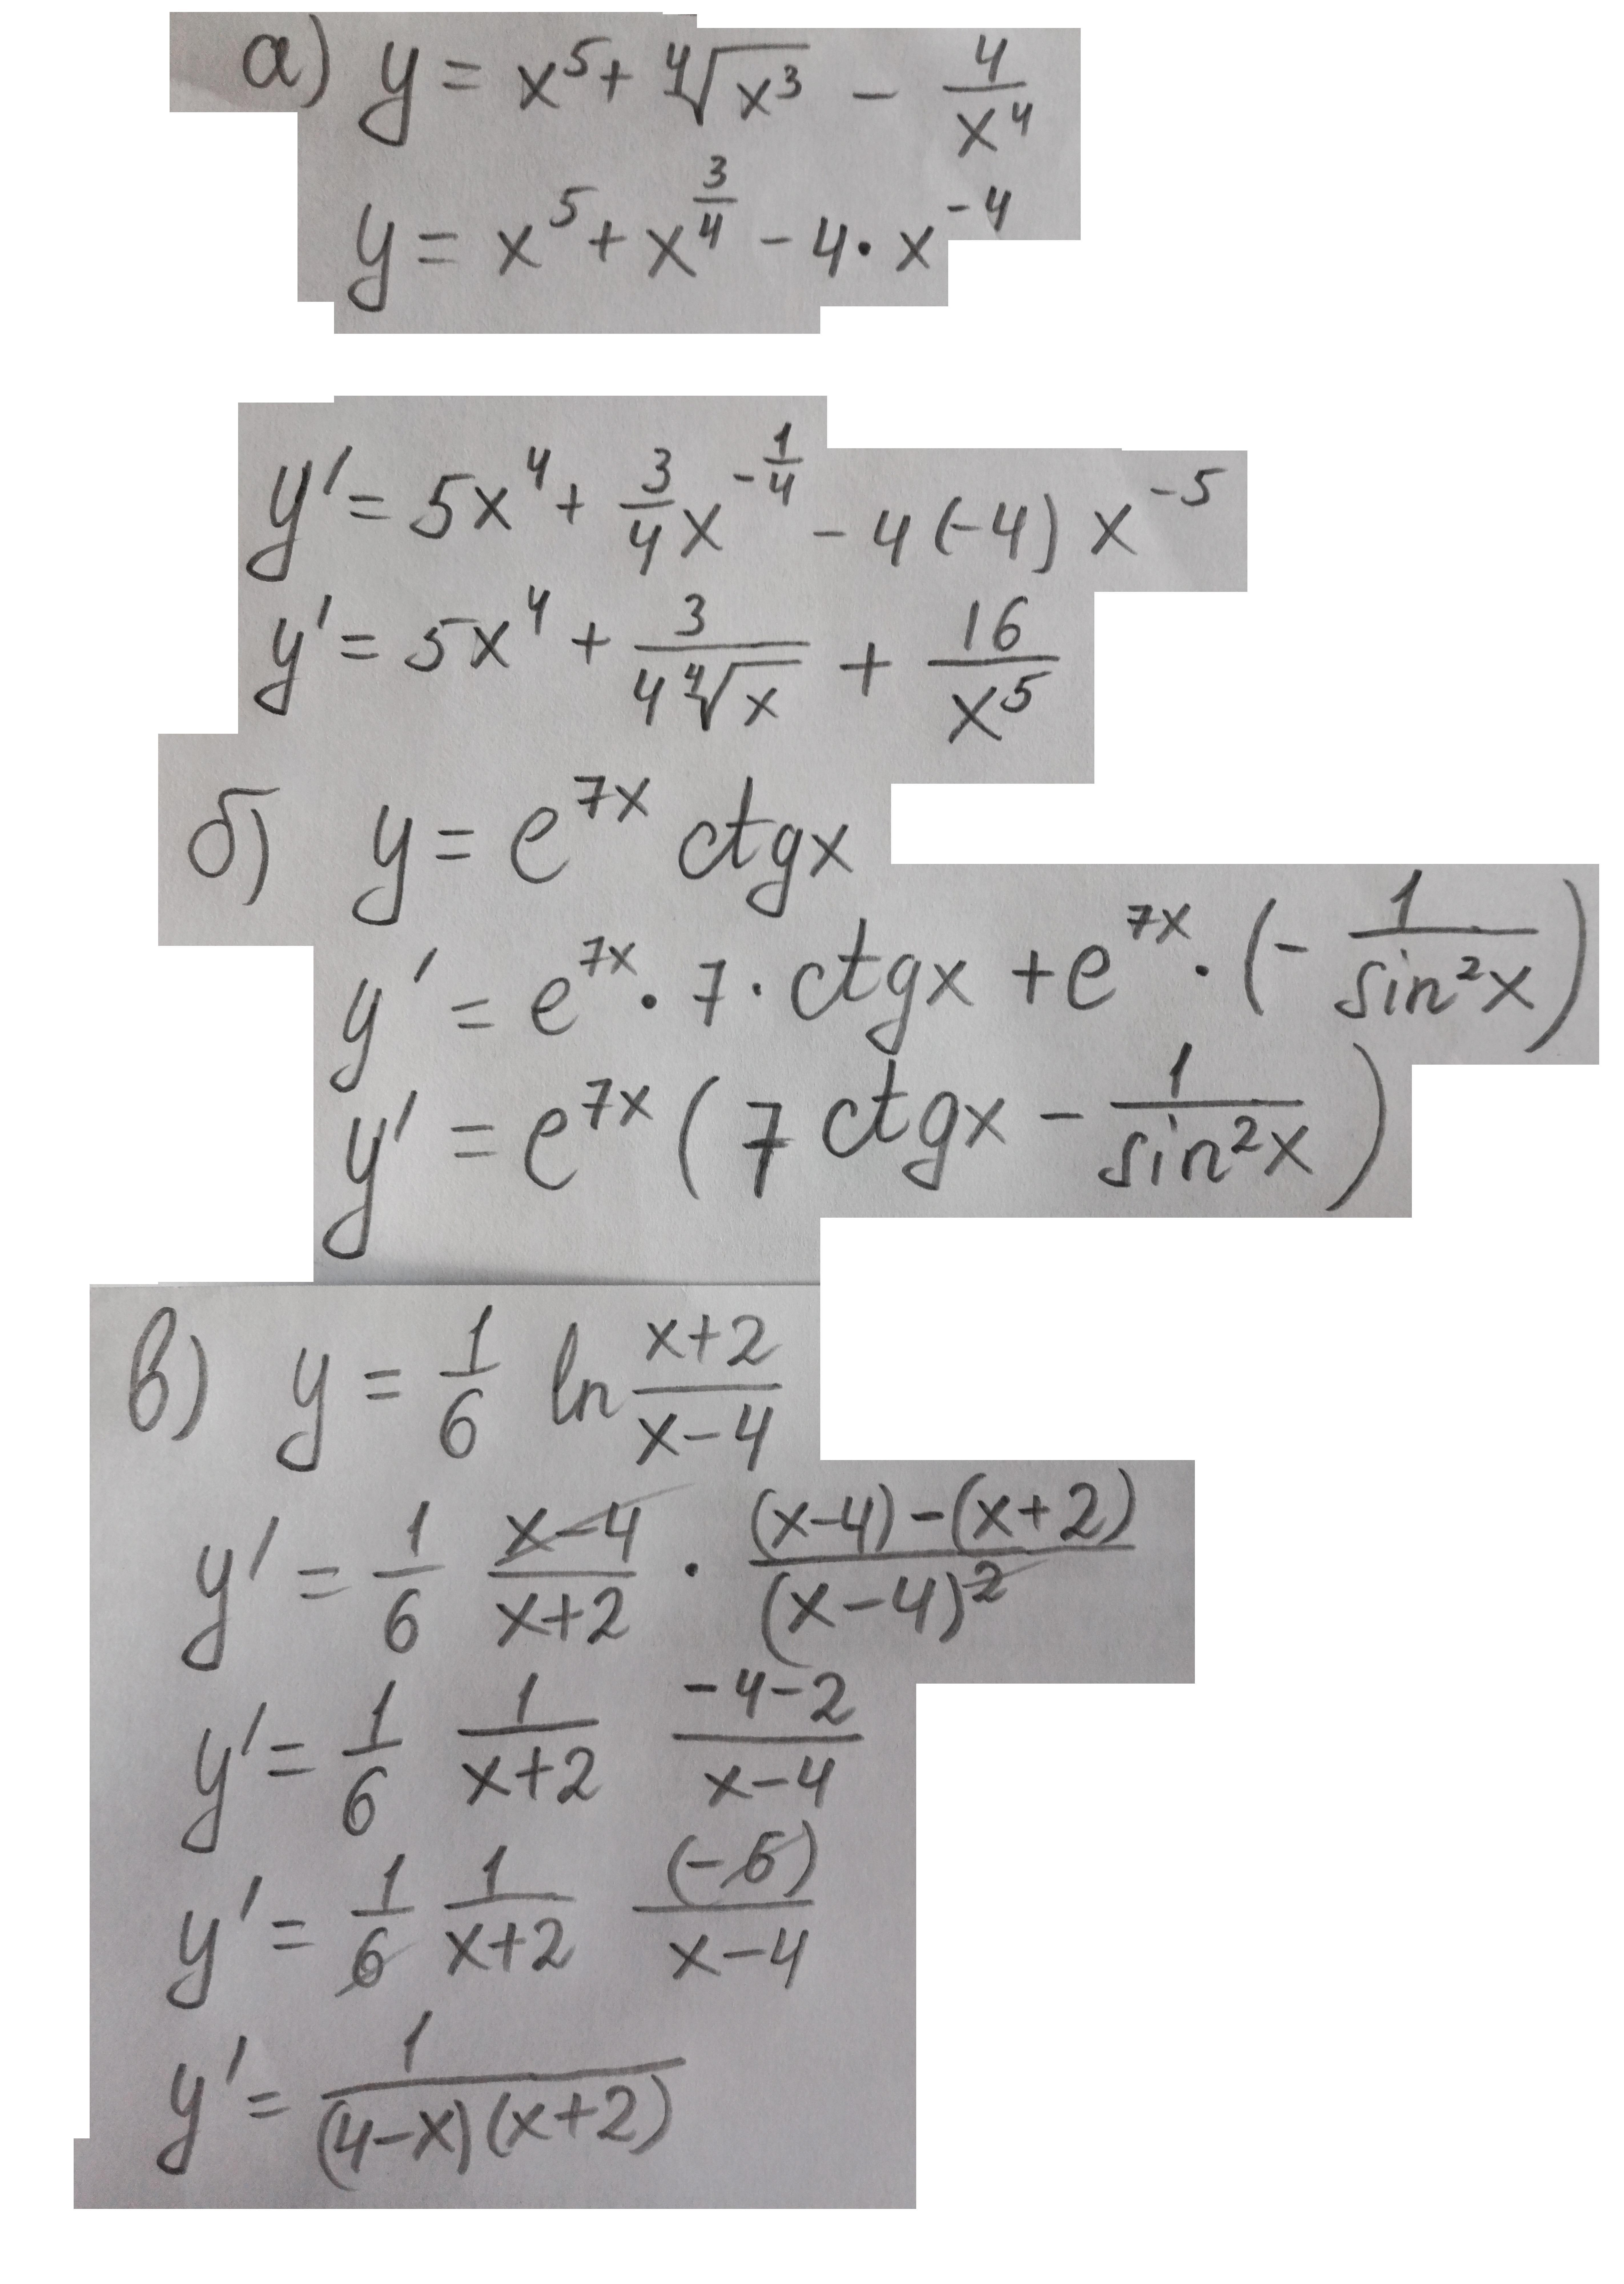 а) y = x⁵ + ∜(x³) − 4/x⁴
y = x⁵ + x^(3/4) − 4 · x⁻⁴
y′ = 5x⁴ + 3/4 x^(−1/4) − 4(−4) x⁻⁵
y′ = 5x⁴ + 3/(4∜x) + 16/x⁵
б) y = e^(7x) ctgx
y′ = e^(7x) · 7 · ctgx + e^(7x) · (− 1/sin²x)
y′ = e^(7x) (7 ctgx − 1/sin²x)
в) y = 1/6 ln (x+2)/(x−4)
y′ = 1/6 (x−4)/(x+2) · ((x−4)−(x+2))/(x−4)²
y′ = 1/6 1/(x+2) (−4−2)/(x−4)
y′ = 1/6 1/(x+2) (−6)/(x−4)
y′ = 1/((4−x)(x+2))